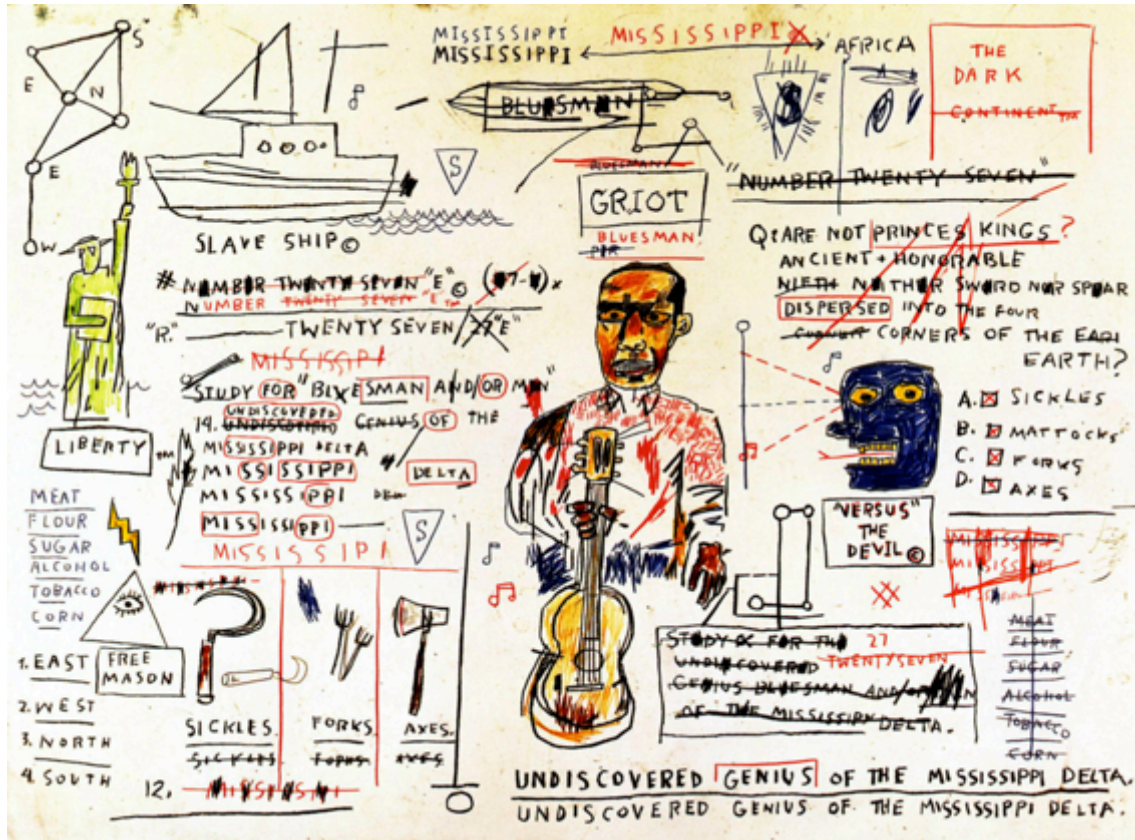 S
E
N
E
W
MISSISSIPPI MISSISSIPPI
MISSISSIPPI
AFRICA
BLUESMAN
S
S
THE
DARK
CONTINENT TM
BLUESMAN
GRIOT
BLUESMAN
"NUMBER TWENTY SEVEN"
SLAVE SHIP ©
# NUMBER TWENTY SEVEN "E" ©
NUMBER TWENTY SEVEN "E" TM
"R." TWENTY SEVEN/27"E"
MISSISSIPI
STUDY FOR "BLUESMAN AND/OR MAN"
UNDISCOVERED
14. UNDISCOTERED GENIUS OF THE
MISSISSIPPI DELTA
MISSISSIPPI DELTA
MISSISSIPPI DEL
MISSISSIPPI
S
MISSISSIPI
LIBERTY TM
MEAT
FLOUR
SUGAR
ALCOHOL
TOBACCO
CORN
FREE
MASON
1. EAST
2. WEST
3. NORTH
4. SOUTH
SICKLES. FORKS. AXES.
SICKLES FORKS AXES
12.
Q: ARE NOT PRINCES KINGS?
ANCIENT + HONORABLE
NIETH NEITHER SWORD NOR SPEAR
DISPERSED INTO THE FOUR
CORNERS OF THE EARI
EARTH?
A. SICKLES
B. MATTOCKS
C. FORKS
D. AXES
"VERSUS"
THE
DEVIL ©
MISSISSIPPI
MISSISSIPPI
MEAT
FLOUR
SUGAR
ALCOHOL
TOBACCO
CORN
STUDY FOR THE 27
UNDISCOVERED TWENTYSEVEN
GENIUS BLUESMAN AND/OR MAN
OF THE MISSISSIPPI DELTA.
UNDISCOVERED GENIUS OF THE MISSISSIPPI DELTA.
UNDISCOVERED GENIUS OF THE MISSISSIPPI DELTA.